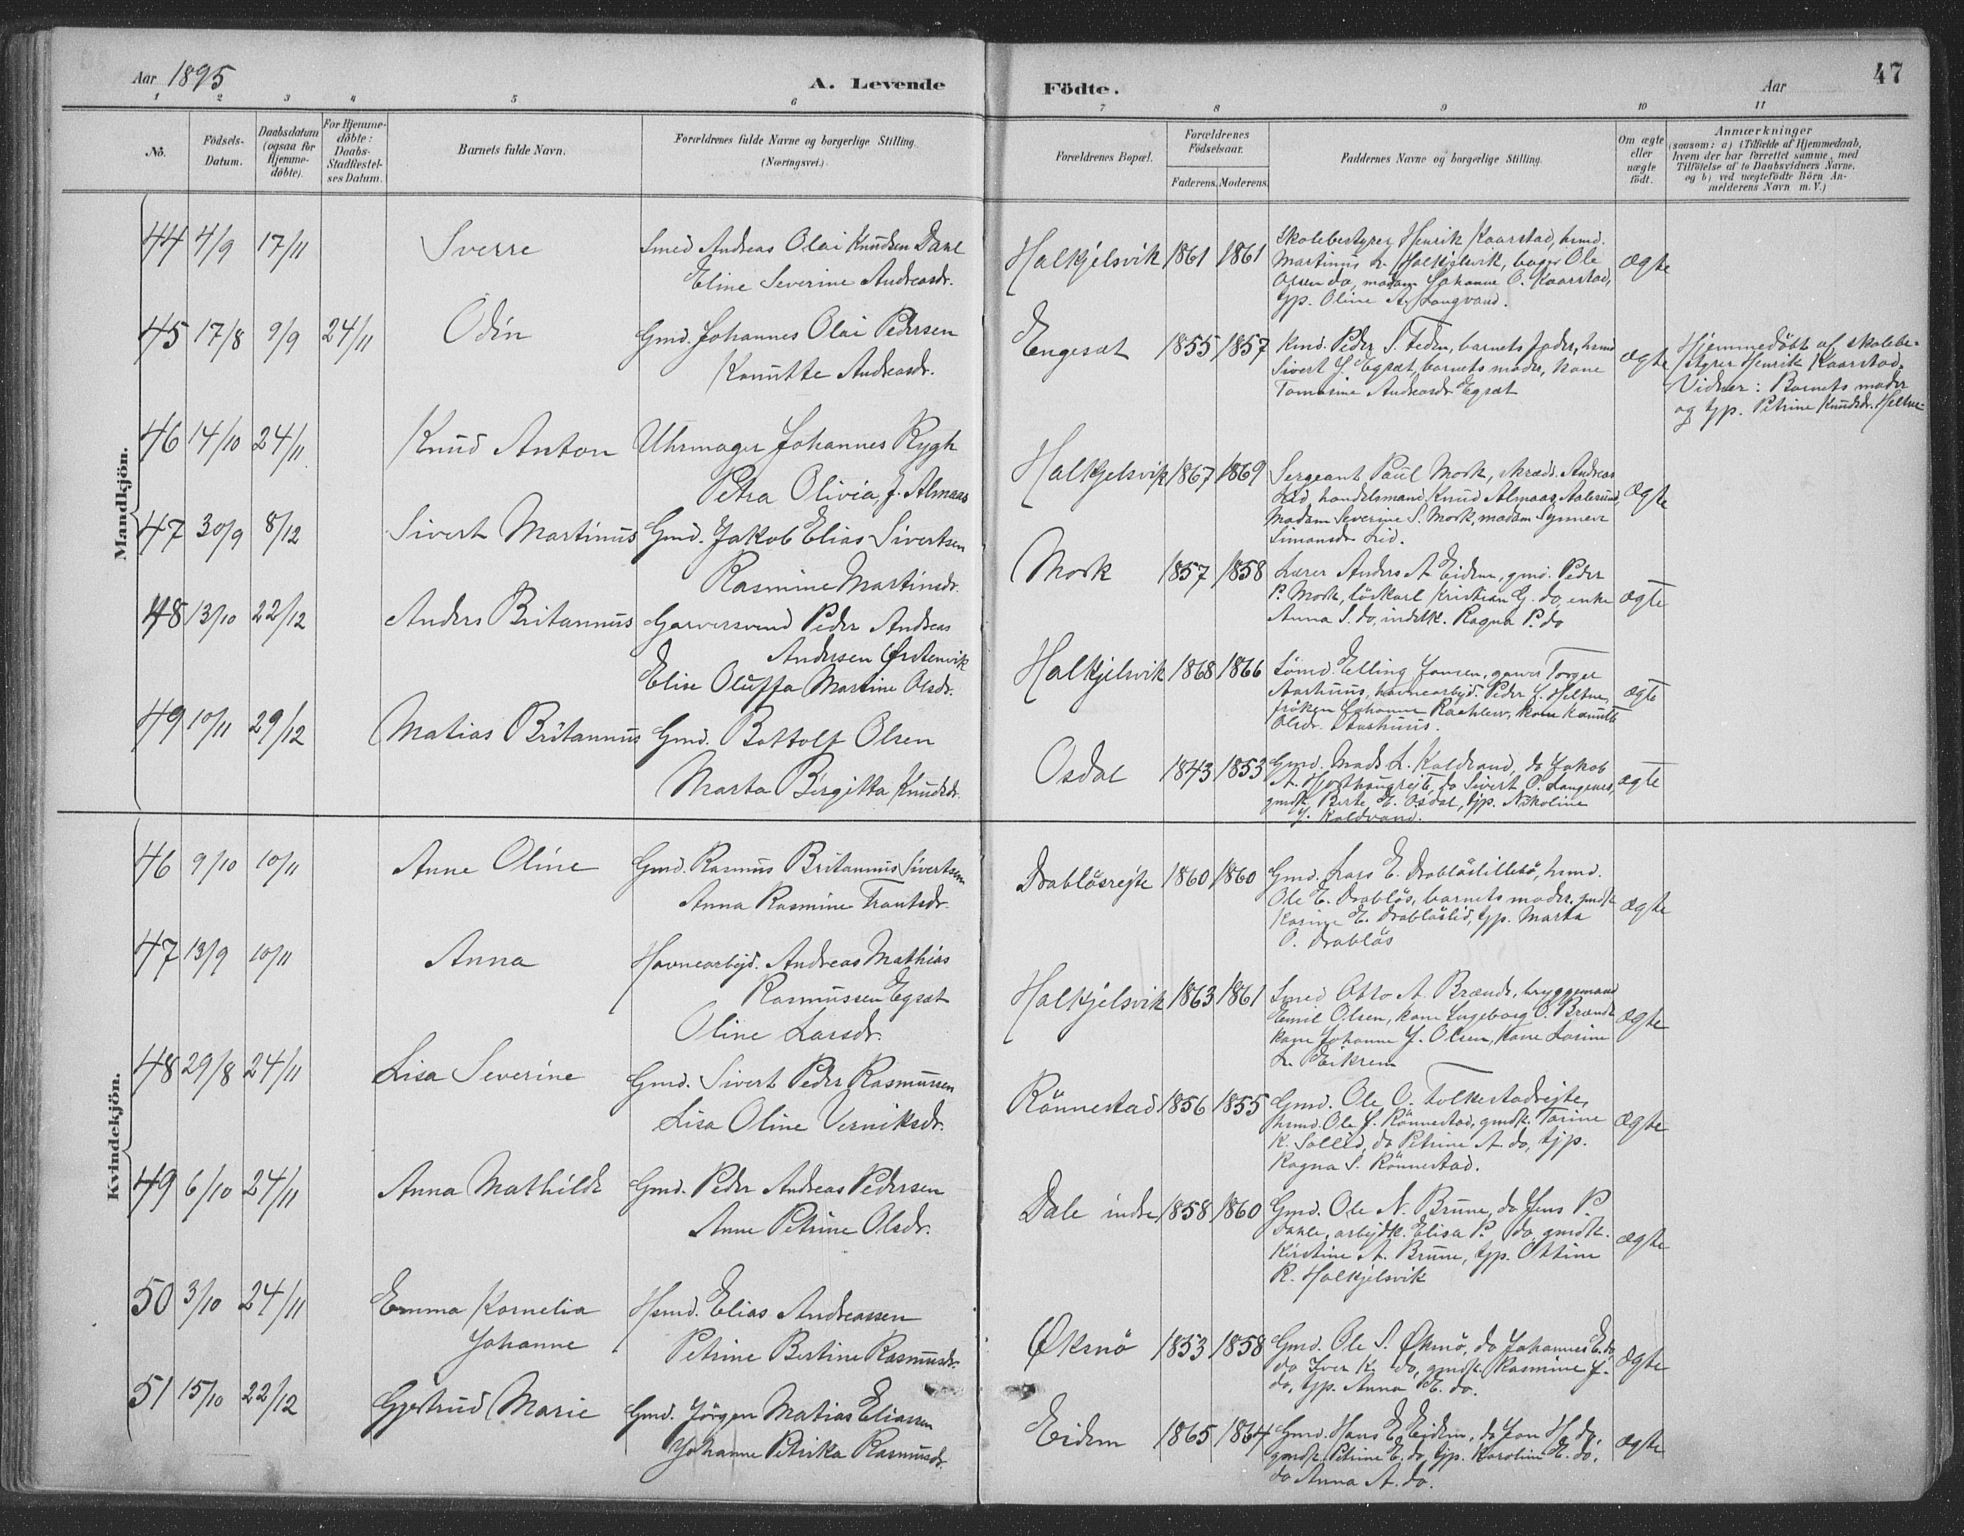 Aar 1895
A. Levende
Födte.
Aar
47
1 2 3 4 5 6 7 8 9 10 11
No.
Födsels-
Datum.
Daabsdatum
(ogsaa for
Hjemme-
döbte).
For Hjemme-
döbte:
Daabs-
Stadfæstel-
ses Datum.
Barnets fulde Navn.
Forældrenes fulde Navne og borgerlige Stilling.
(Næringsvei.)
Forældrenes Bopæl.
Forældrenes
Födselsaar.
Faderens. Moderens.
Faddernes Navne og borgerlige Stilling.
Om ægte
eller
uægte
födt.
Anmærkninger
(saasom: a) i Tilfælde af Hjemmedaab,
hvem der har forrettet samme, med
Tilföielse af to Daabsvidners Navne,
og b) ved uægtefödte Börn An-
melderens Navn m. V.)
Mandkjön.
44 4/9 17/11 Sverre
Smed Andreas Olai Knudsen Dahl
Eline Severine Andreasdr.
Halkjelsvik 1861 1861
Skolebestyrer Henrik Kaarstad, husmd.
Martinus L. Halkjelsvik, bager Ole
Olsen do, madam Johanne O. Kaarstad,
typ. Oline A. Langvand.
ægte
45 17/8 9/9 24/11 Odin
Gmd. Johannes Olai Pedersen
Knutte Andreasdr.
Engeset 1855 1857
Kmd. Peder T. Feden, barnets fader, husmd
Sivert S. Egsæt, barnets moder, kone
Tomasine Andreasdr Egsæt
ægte
Hjemmedöbt af skolebe-
styrer Henrik Kaarstad.
Vidner: Barnets moder
og typ. Petrine Knudsdr. Heltne
46 14/10 24/11 Knud Anton
Uhrmager Johannes Rygh
Petra Olivia f. Almaas
Halkjelsvik 1867 1869
Sergeant Paul Mork, skræd. Andreas
Lid, handelsmand Knud Almaas, Aalesund,
Madam Severine S. Mork, madam Synneve
Simonsdr Lid.
ægte
47 30/9 8/12 Sivert Martinus
Gmd. Jakob Elias Sivertsen
Rasmine Martinsdr.
Mork 1857 1858
Lærer Anders A. Eidem, gmd. Peder
P. Mork, löskarl Kristian G. do, enke
Anna S. do, indstk. Ragna P. do
ægte
48 13/10 22/12 Anders Britannus
Garversvend Peder Andreas
Andersen Örstenvik
Elise Oluffa Martine Olsdr.
Halkjelsvik 1868 1866
Sömd. Elling Jansen, garver Torger
Aarhuus, havnearbejd. Peder L. Heltne,
fröken Johanne Rachlew, kone Knutte
Olsdr. Aarhuus.
ægte
49 10/11 29/12 Matias Britannus
Gmd. Bottolf Olsen
Marta Birgitta Knudsdr.
Osdal 1843 1853
Gmd. Mads L. Kaldvand, do Jakob
A. Hjorthaugrejt, do Sivert O. Langenes,
gmdk. Berte K. Osdal, typ. Nikoline
J. Kaldvand.
ægte
Kvindekjön.
46 9/10 10/11 Anne Oline
Gmd. Rasmus Britannus Sivertsen
Anna Rasmine Trontsdr.
Drablösrejte 1860 1860
Gmd. Lars E. Drablöslillebö, husmd.
Ole E. Drablös, barnets moder, gmdk
Karine E. Drablöslid, typ. Marta
O. Drablös
ægte
47 13/9 10/11 Anna
Havnearbejd. Andreas Mathias
Rasmussen Egsæt
Oline Larsdr.
Halkjelsvik 1863 1861
Smed Otto A. Brænde, bryggemand
Emil Olsen, kone Ingeborg O. Brænde
kone Johanne J. Olsen, kone Lorine
L. Eikrem
ægte
48 29/8 24/11 Lisa Severine
Gmd. Sivert Peder Rasmussen
Lisa Oline Verniksdr.
Rönnestad 1856 1855
Gmd. Ole O. Folkestadrejte,
husmd. Ole J. Rönnestad, gmdk. Tarine
K. Sollid, do Petrine A. do, typ.
Ragna S. Rönnestad.
ægte
49 6/10 24/11 Anna Mathilde
Gmd. Peder Andreas Pedersen
Anne Petrine Olsdr.
Dale indre 1858 1860
Gmd. Ole N. Brune, do Jens P.
Dahle, arbejdk. Elisa P. do, gmdk.
Kirstine A. Brune, typ. Ottine
R. Halkjelsvik
ægte
50 3/10 24/11 Emma Kornelia
Johanne
Hsmd. Elias Andreassen
Petrine Bertine Rasmusdr.
Öksnö 1853 1858
Gmd. Ole S. Öksnö, do Johannes E. do
do Iver K. do, gmdk. Rasmine J.
do, typ. Anna K. do.
ægte
51 15/10 22/12 Gjertrud Marie
Gmd. Jörgen Matias Eliassen
Johanne Petrika Rasmusdr.
Eidem 1865 1864
Gmd. Hans E. Eidem, do Jon H. do,
gmdk. Petrine E. do, typ. Karoline E. do,
do Anna A. do.
ægte